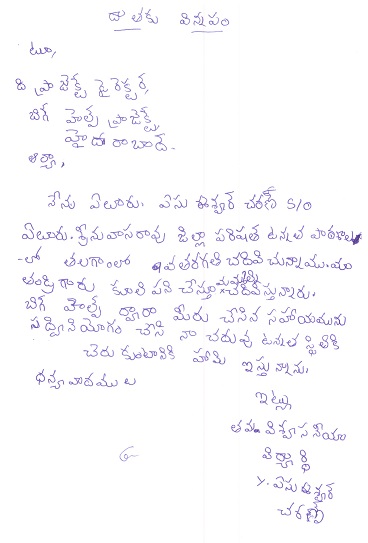 దాతకు విన్నపం
టూ,
ది ప్రాజెక్ట్ డైరెక్టర్,
బిగ్ హెల్ప్ ప్రాజెక్ట్,
హైదరాబాద్.
ఆర్యా,
నేను ఏలూరు. ఏసు ఈశ్వర్ చరణ్ S/O
ఏలూరు. శ్రీనువాసరావు జిల్లా పరిషత్ ఉన్నత పాఠశాల
-లో తలగాంలో వతరగతి చదివి చున్నాము. మా
తండ్రి గారు కూలి పని చేస్తూ మమ్మల్ని చదివిస్తున్నారు.
బిగ్ హెల్ప్ ద్వారా మీరు చేసిన సహాయమును
సద్వినియోగం చేసి నా చదువు ఉన్నత స్థితికి
చేరు కుంటానికి హామి ఇస్తున్నాను.
ధన్యవాదములు
ఇట్లు
తమ విశ్వాసనీయ
విద్యార్థి
Y. ఏసు ఈశ్వర్
చరణ్